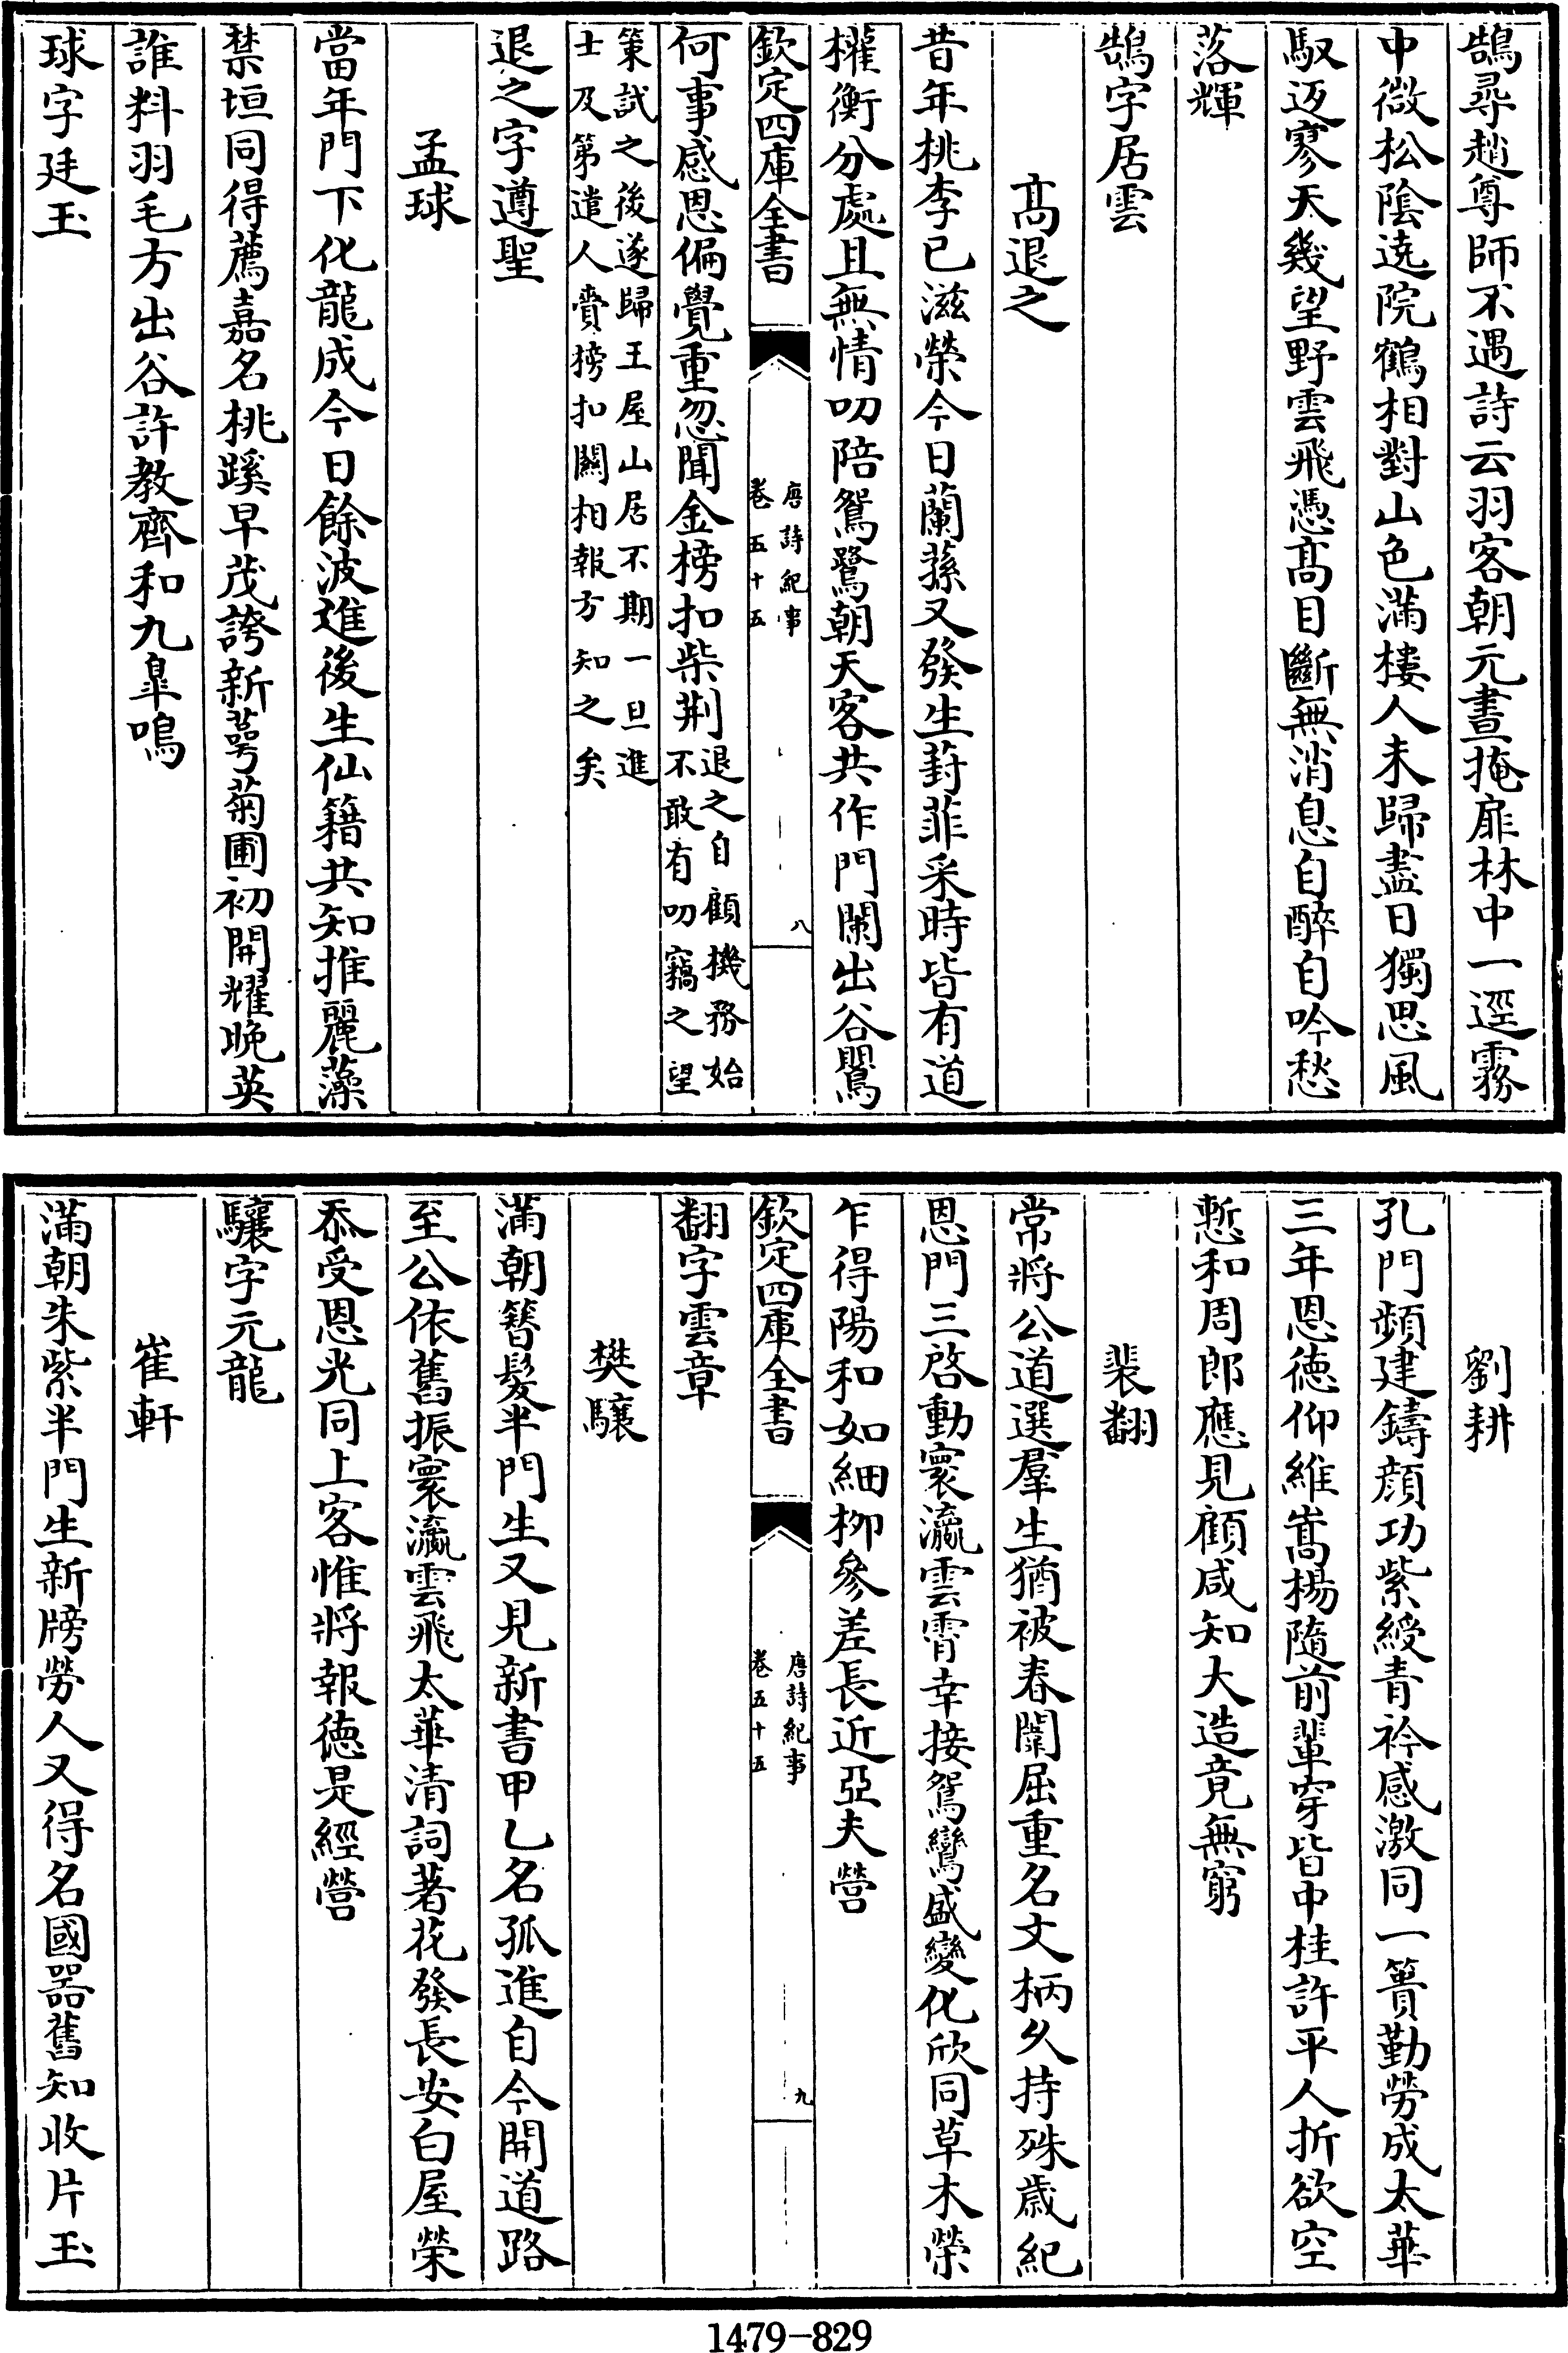 鵠尋趙尊師不遇詩云羽客朝元晝掩扉林中一逕霧
中微松陰遶院鶴相對山色滿樓人未歸盡日獨思風
馭返寥天幾望野雲飛憑髙目斷無消息自醉自吟愁
落輝
鵠字居雲
髙退之
昔年桃李已滋榮今日蘭蓀又發生葑菲采時皆有道
權衡分處且無情叨陪鴛鷺朝天客共作門闌出谷鸎
欽定四庫全書
唐詩紀事
卷五十五
八
何事感恩偏覺重忽聞金榜扣柴荆
退之自顧機務始
不敢有叨竊之望
策試之後遂歸王屋山居不期一旦進
士及第遣人賫榜扣關相報方知之矣
退之字遵聖
孟球
當年門下化龍成今日餘波進後生仙籍共知推麗藻
禁垣同得薦嘉名桃蹊早茂誇新萼菊圃初開耀晚英
誰料羽毛方出谷許教齊和九臯鳴
球字廷玉
劉耕
孔門頻建鑄顔功紫綬青衿感激同一簣勤勞成太華
三年恩德仰維嵩楊隨前輩穿皆中桂許平人折欲空
慙和周郎應見顧咸知大造竟無窮
裴翻
常將公道選羣生猶被春闈屈重名文柄久持殊歲紀
恩門三啓動寰瀛雲霄幸接鴛鸞盛變化欣同草木榮
乍得陽和如細柳參差長近亞夫營
欽定四庫全書
唐詩紀事
卷五十五
九
翻字雲章
樊驤
滿朝簪髪半門生又見新書甲乙名孤進自今開道路
至公依舊振寰瀛雲飛太華清詞著花發長安白屋榮
忝受恩光同上客惟將報德是經營
驤字元龍
崔軒
滿朝朱紫半門生新牓勞人又得名國器舊知收片玉
1479-829